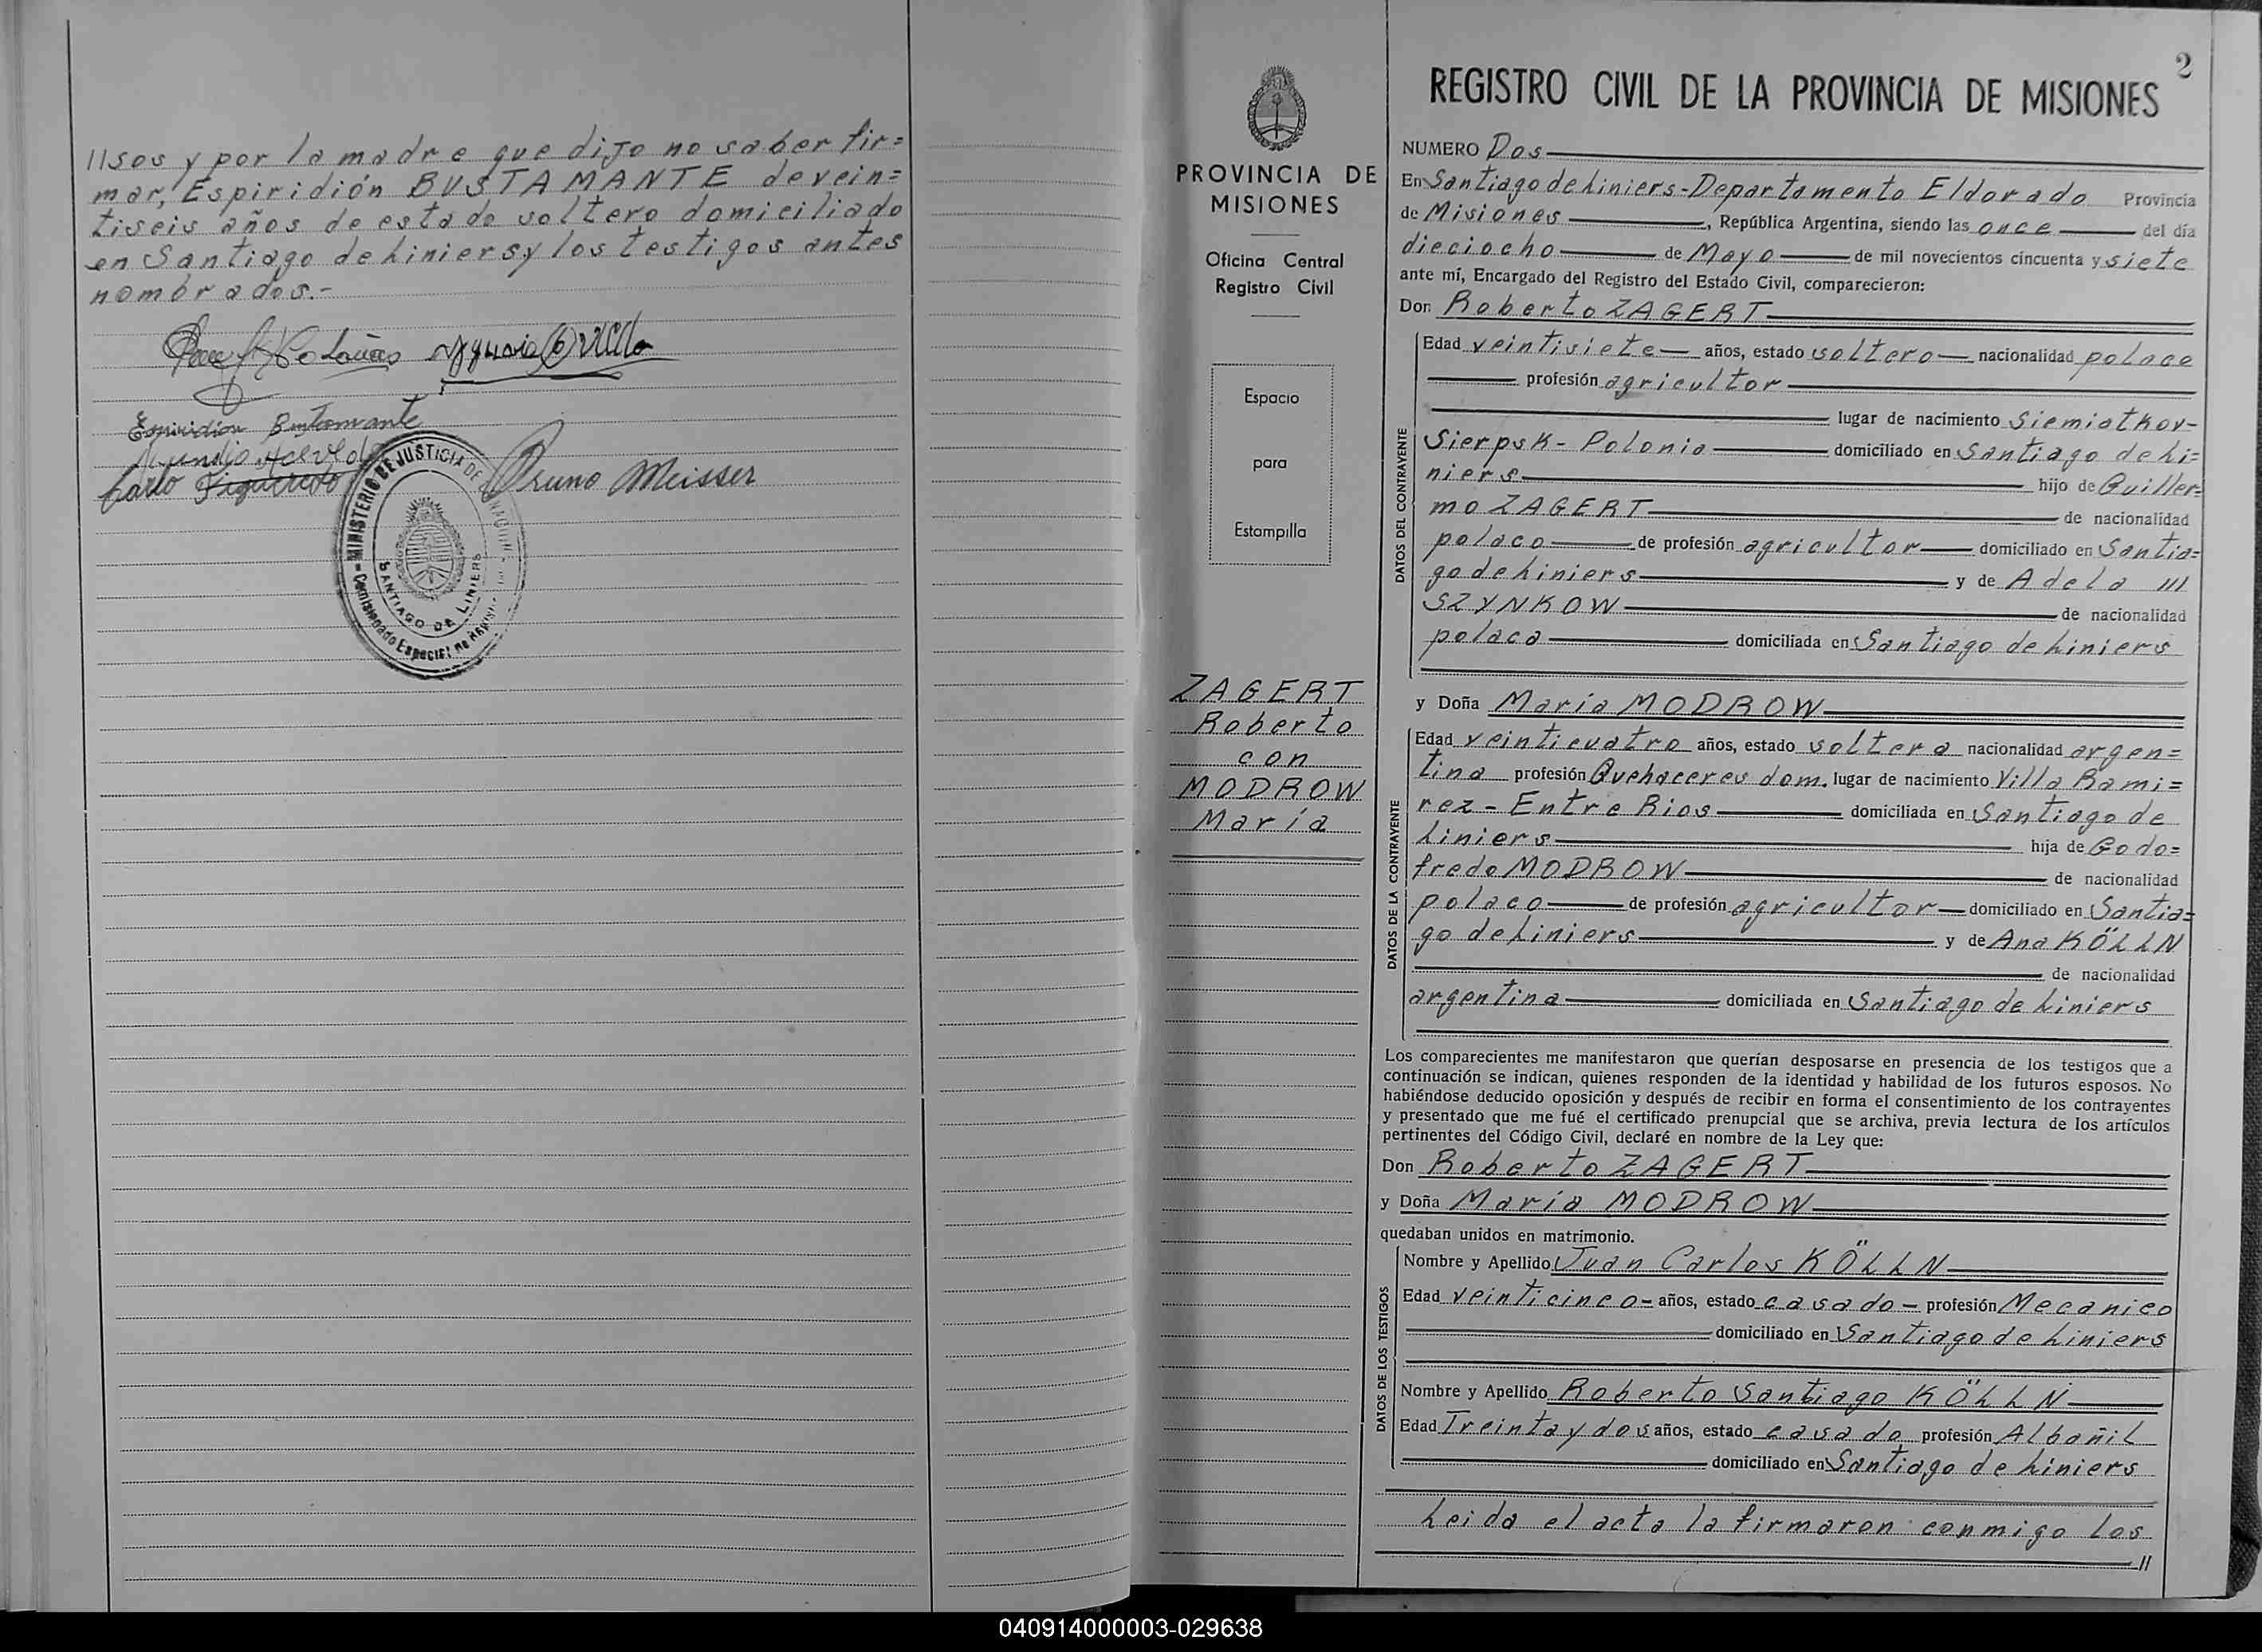 //sos y por la madre que dijo no saber fir=
mar, Espiridión BUSTAMANTE de vein=
tiseis años de estado soltero domiciliado
en Santiago de Liniers y los testigos antes
nombrados.-
Espiridion Bustamante
Carlo Figueredo
Bruno Meisser
MINISTERIO DE JUSTICIA DE
SANTIAGO DE LINIERS
Comisionado Especial
PROVINCIA DE
MISIONES
Oficina Central
Registro Civil
Espacio
para
Estampilla
ZAGERT
Roberto
con
MODROW
María
2
REGISTRO CIVIL DE LA PROVINCIA DE MISIONES
NUMERO Dos
En Santiago de Liniers-Departamento Eldorado Provincia
de Misiones, República Argentina, siendo las once del día
dieciocho de Mayo de mil novecientos cincuenta y siete
ante mí, Encargado del Registro del Estado Civil, comparecieron:
Don Roberto ZAGERT
DATOS DEL CONTRAYENTE
Edad veintisiete años, estado soltero nacionalidad polaco
profesión agricultor
lugar de nacimiento Siemiatkov-
Sierpsk- Polonia domiciliado en Santiago de Li=
niers hijo de Guiller=
mo ZAGERT de nacionalidad
polaco de profesión agricultor domiciliado en Santia=
go de Liniers y de Adela ///
SZYNKOW de nacionalidad
polaca domiciliada en Santiago de Liniers
y Doña María MODROW
DATOS DE LA CONTRAYENTE
Edad veinticuatro años, estado soltera nacionalidad argen=
tina profesión Quehaceres dom. lugar de nacimiento Villa Rami=
rez - Entre Rios domiciliada en Santiago de
Liniers hija de Godo=
fredo MODROW de nacionalidad
polaco de profesión agricultor domiciliado en Santia=
go de Liniers y de Ana KÖLLN
de nacionalidad
argentina domiciliada en Santiago de Liniers
Los comparecientes me manifestaron que querían desposarse en presencia de los testigos que a
continuación se indican, quienes responden de la identidad y habilidad de los futuros esposos. No
habiéndose deducido oposición y después de recibir en forma el consentimiento de los contrayentes
y presentado que me fué el certificado prenupcial que se archiva, previa lectura de los artículos
pertinentes del Código Civil, declaré en nombre de la Ley que:
Don Roberto ZAGERT
y Doña María MODROW
quedaban unidos en matrimonio.
DATOS DE LOS TESTIGOS
Nombre y Apellido Juan Carlos KÖLLN
Edad veinticinco- años, estado casado - profesión Mecanico
domiciliado en Santiago de Liniers
Nombre y Apellido Roberto Santiago KÖLLN
Edad Treinta y dos años, estado casado profesión Albañil
domiciliado en Santiago de Liniers
Leida el acta la firmaron conmigo los
//
040914000003-029638